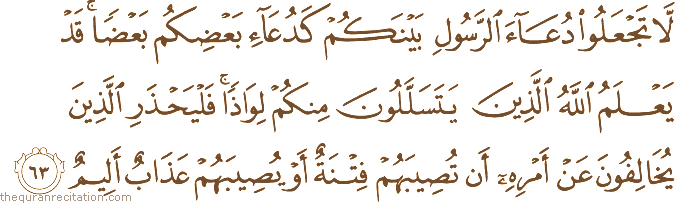 لَّا تَجْعَلُوا۟ دُعَآءَ ٱلرَّسُولِ بَيْنَكُمْ كَدُعَآءِ بَعْضِكُم بَعْضًا ۚ قَدْ
يَعْلَمُ ٱللَّهُ ٱلَّذِينَ يَتَسَلَّلُونَ مِنكُمْ لِوَاذًا ۚ فَلْيَحْذَرِ ٱلَّذِينَ
يُخَالِفُونَ عَنْ أَمْرِهِۦٓ أَن تُصِيبَهُمْ فِتْنَةٌ أَوْ يُصِيبَهُمْ عَذَابٌ أَلِيمٌ ٦٣
thequranrecitation.com